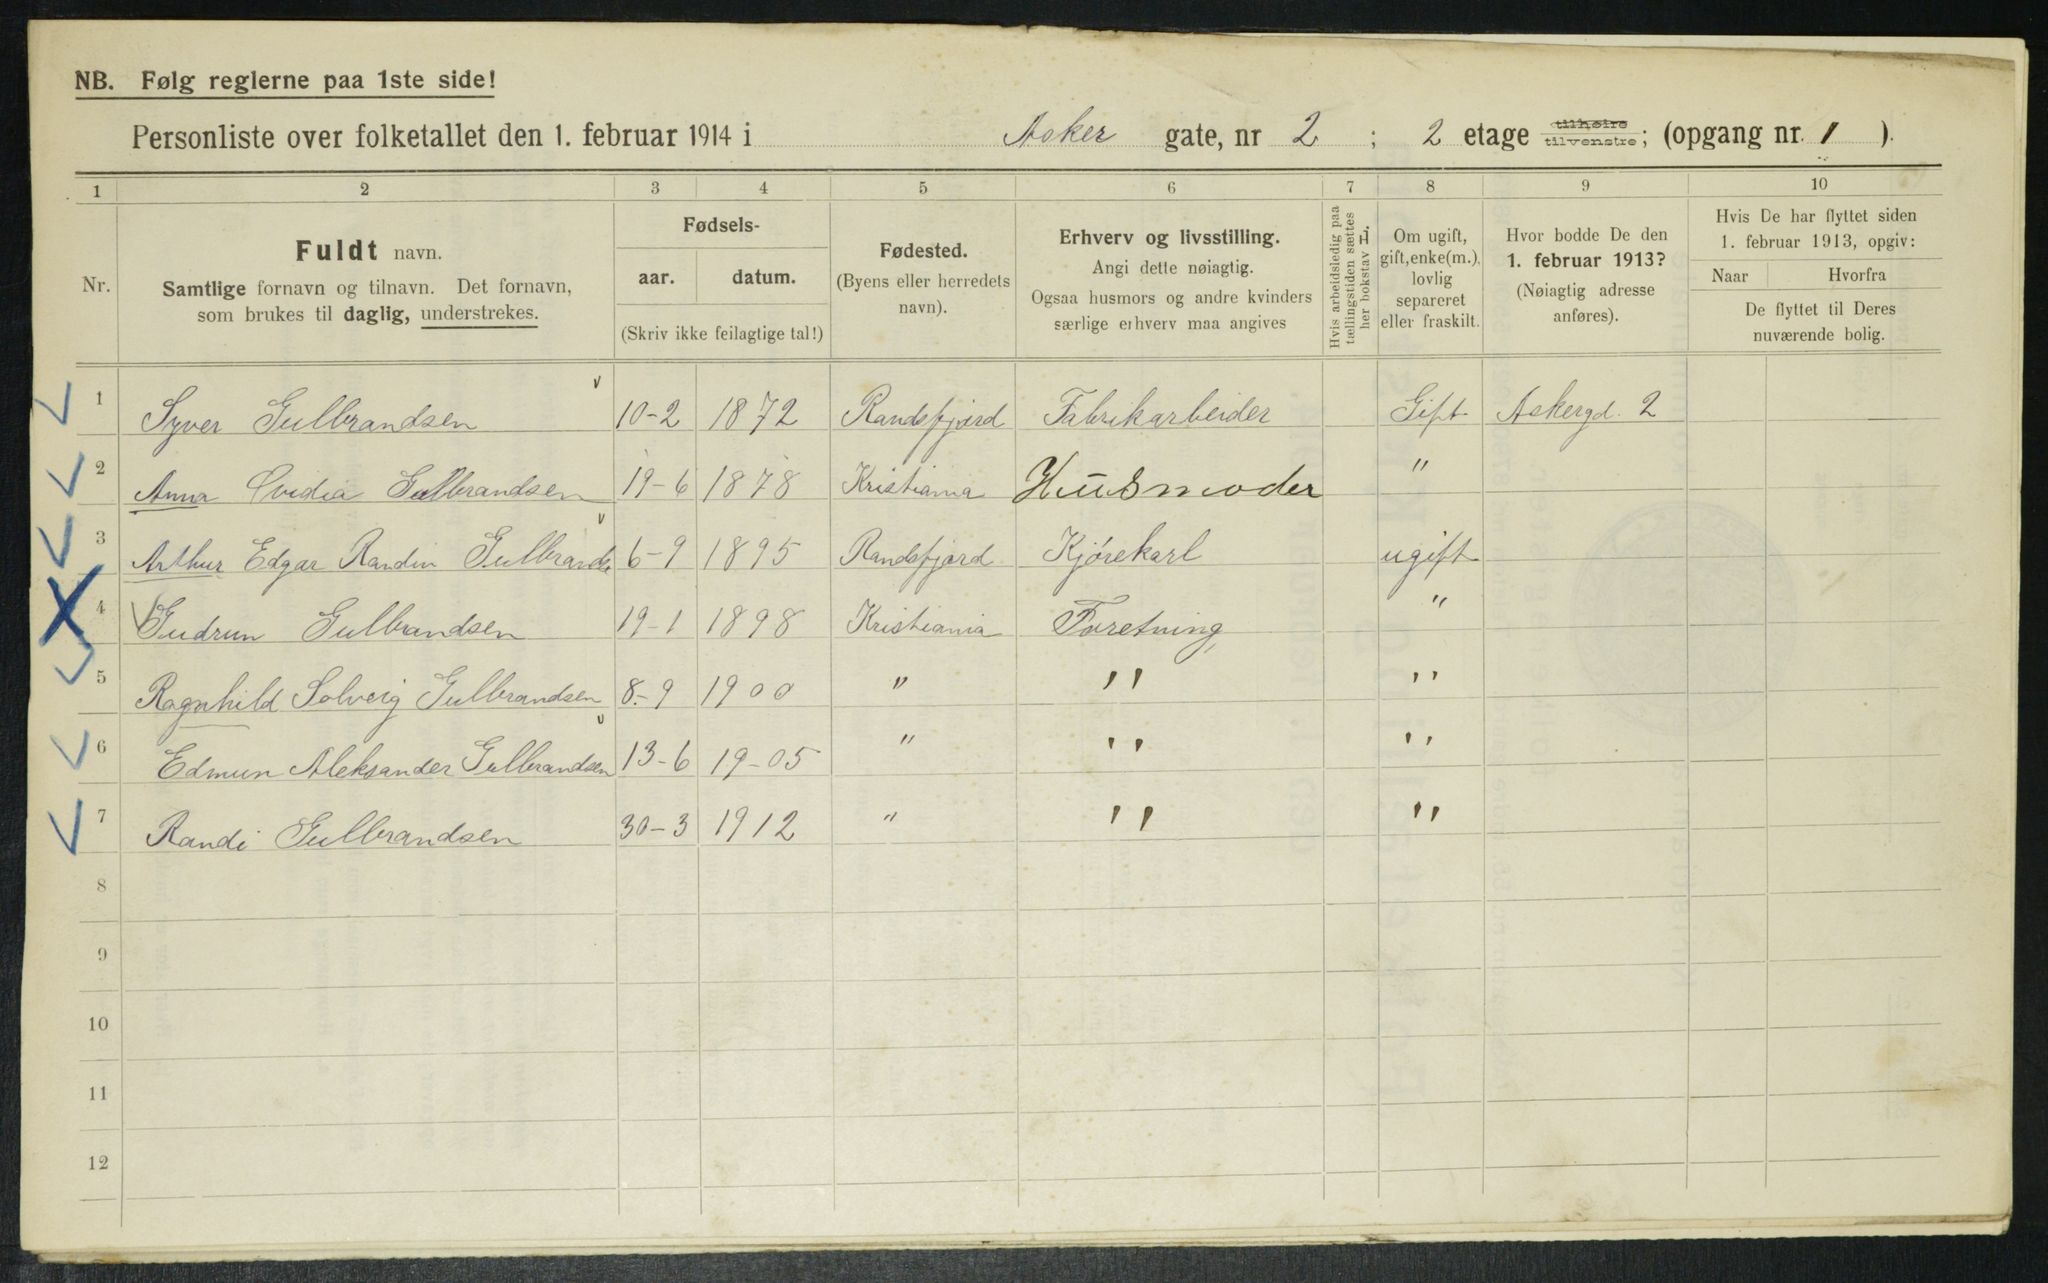 NB. Følg reglerne paa 1ste side!
Personliste over folketallet den 1. februar 1914 i Asker gate, nr 2 ; 2 etage tilhøire tilvenstre; (opgang nr. 1 ).
1 2 3 4 5 6 7 8 9 10
Nr.
Fuldt navn.
Samtlige fornavn og tilnavn. Det fornavn,
som brukes til daglig, understrekes.
Fødsels-
aar. datum.
(Skriv ikke feilagtige tal!)
Fødested.
(Byens eller herredets
navn).
Erhverv og livsstilling.
Angi dette nøiagtig.
Ogsaa husmors og andre kvinders
særlige erhverv maa angives
Hvis arbeidsledig paa
tællingstiden sættes
her bokstav L.
Om ugift,
gift, enke(m.),
lovlig
separeret
eller fraskilt.
Hvor bodde De den
1. februar 1913?
(Nøiagtig adresse
anføres).
Hvis De har flyttet siden
1. februar 1913, opgiv:
Naar Hvorfra
De flyttet til Deres
nuværende bolig.
1 Syver Gulbrandsen 10-2 1872 Randsfjord Fabrikarbeider Gift Askergd. 2
2 Anna Ovidia Gulbrandsen 19-6 1878 Kristiania Husmoder "
3 Arthur Edgar Randin Gulbrandse 6-9 1895 Randsfjord Kjørekarl ugift
4 Gudrun Gulbrandsen 19-1 1898 Kristiania Foretning, "
5 Ragnhild Solveig Gulbrandsen 8-9 1900 " " "
6 Edmun Aleksander Gulbrandsen 13-6 19-05 " " "
7 Randi Gulbrandsen 30-3 1912 " " "
8
9
10
11
12